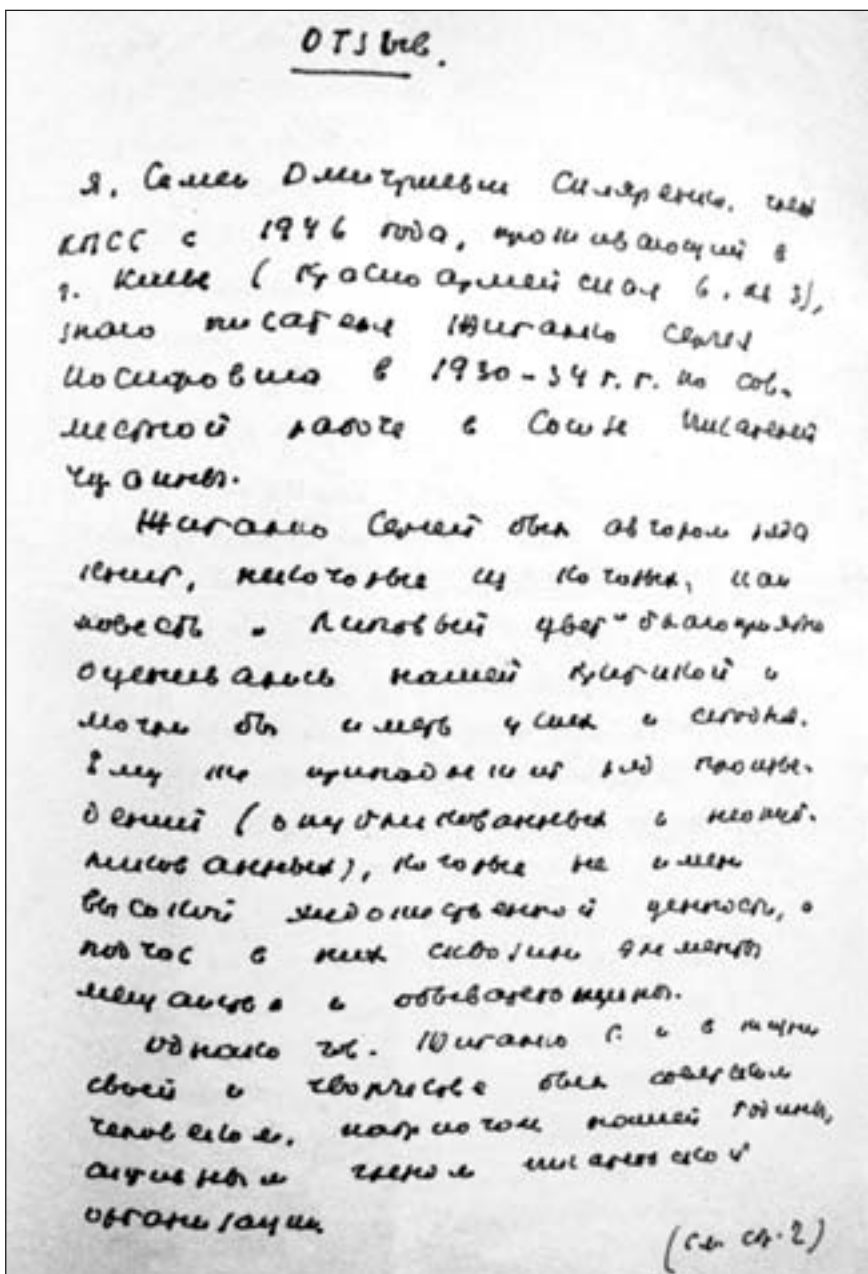 Отзыв.
Я, Семен Дмитриевич Скляренко, член
КПСС с 1946 года, проживающий в
г. Киеве (Красноармейская 6, кв 3),
знаю писателя Жигалко Сергея
по совместной в 1930-34 г.г. по сов-
местной работе в Союзе Писателей
Украины.
Жигалко Сергей был автором ряда
книг, некоторые из которых, как
повесть „Липовый цвет" благоприятно
оценивались нашей критикой и
могли бы иметь успех и сегодня.
Ему же принадлежит ряд произве-
дений (опубликованных и неопуб-
ликованных), которые не имели
высокой художественной ценности, а
подчас в них сквозили элементы
мещанства и обывательщины.
Однако же. Жигалко С. и в жизни
своей и творчестве был советским
человеком, патриотом нашей Родины,
активным членом писательской
организации
(см. ст. 2)